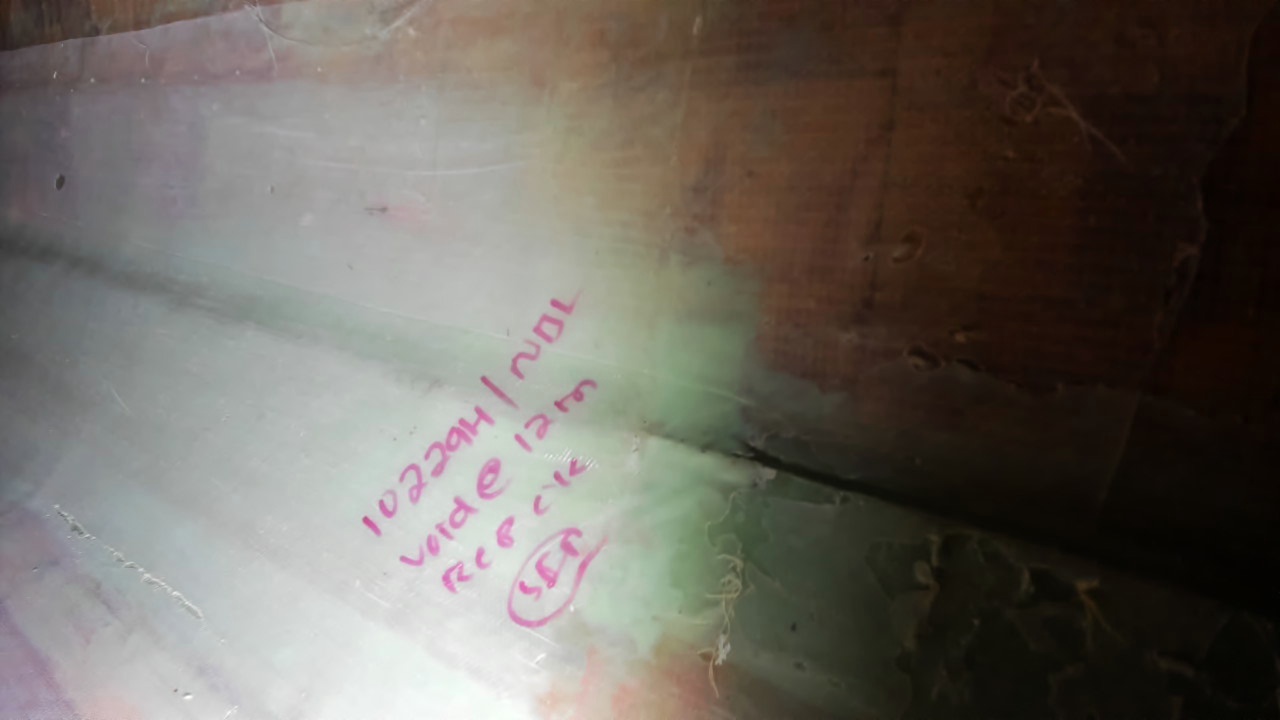 102294 / NDL
void @ 12 m
RCB CYC